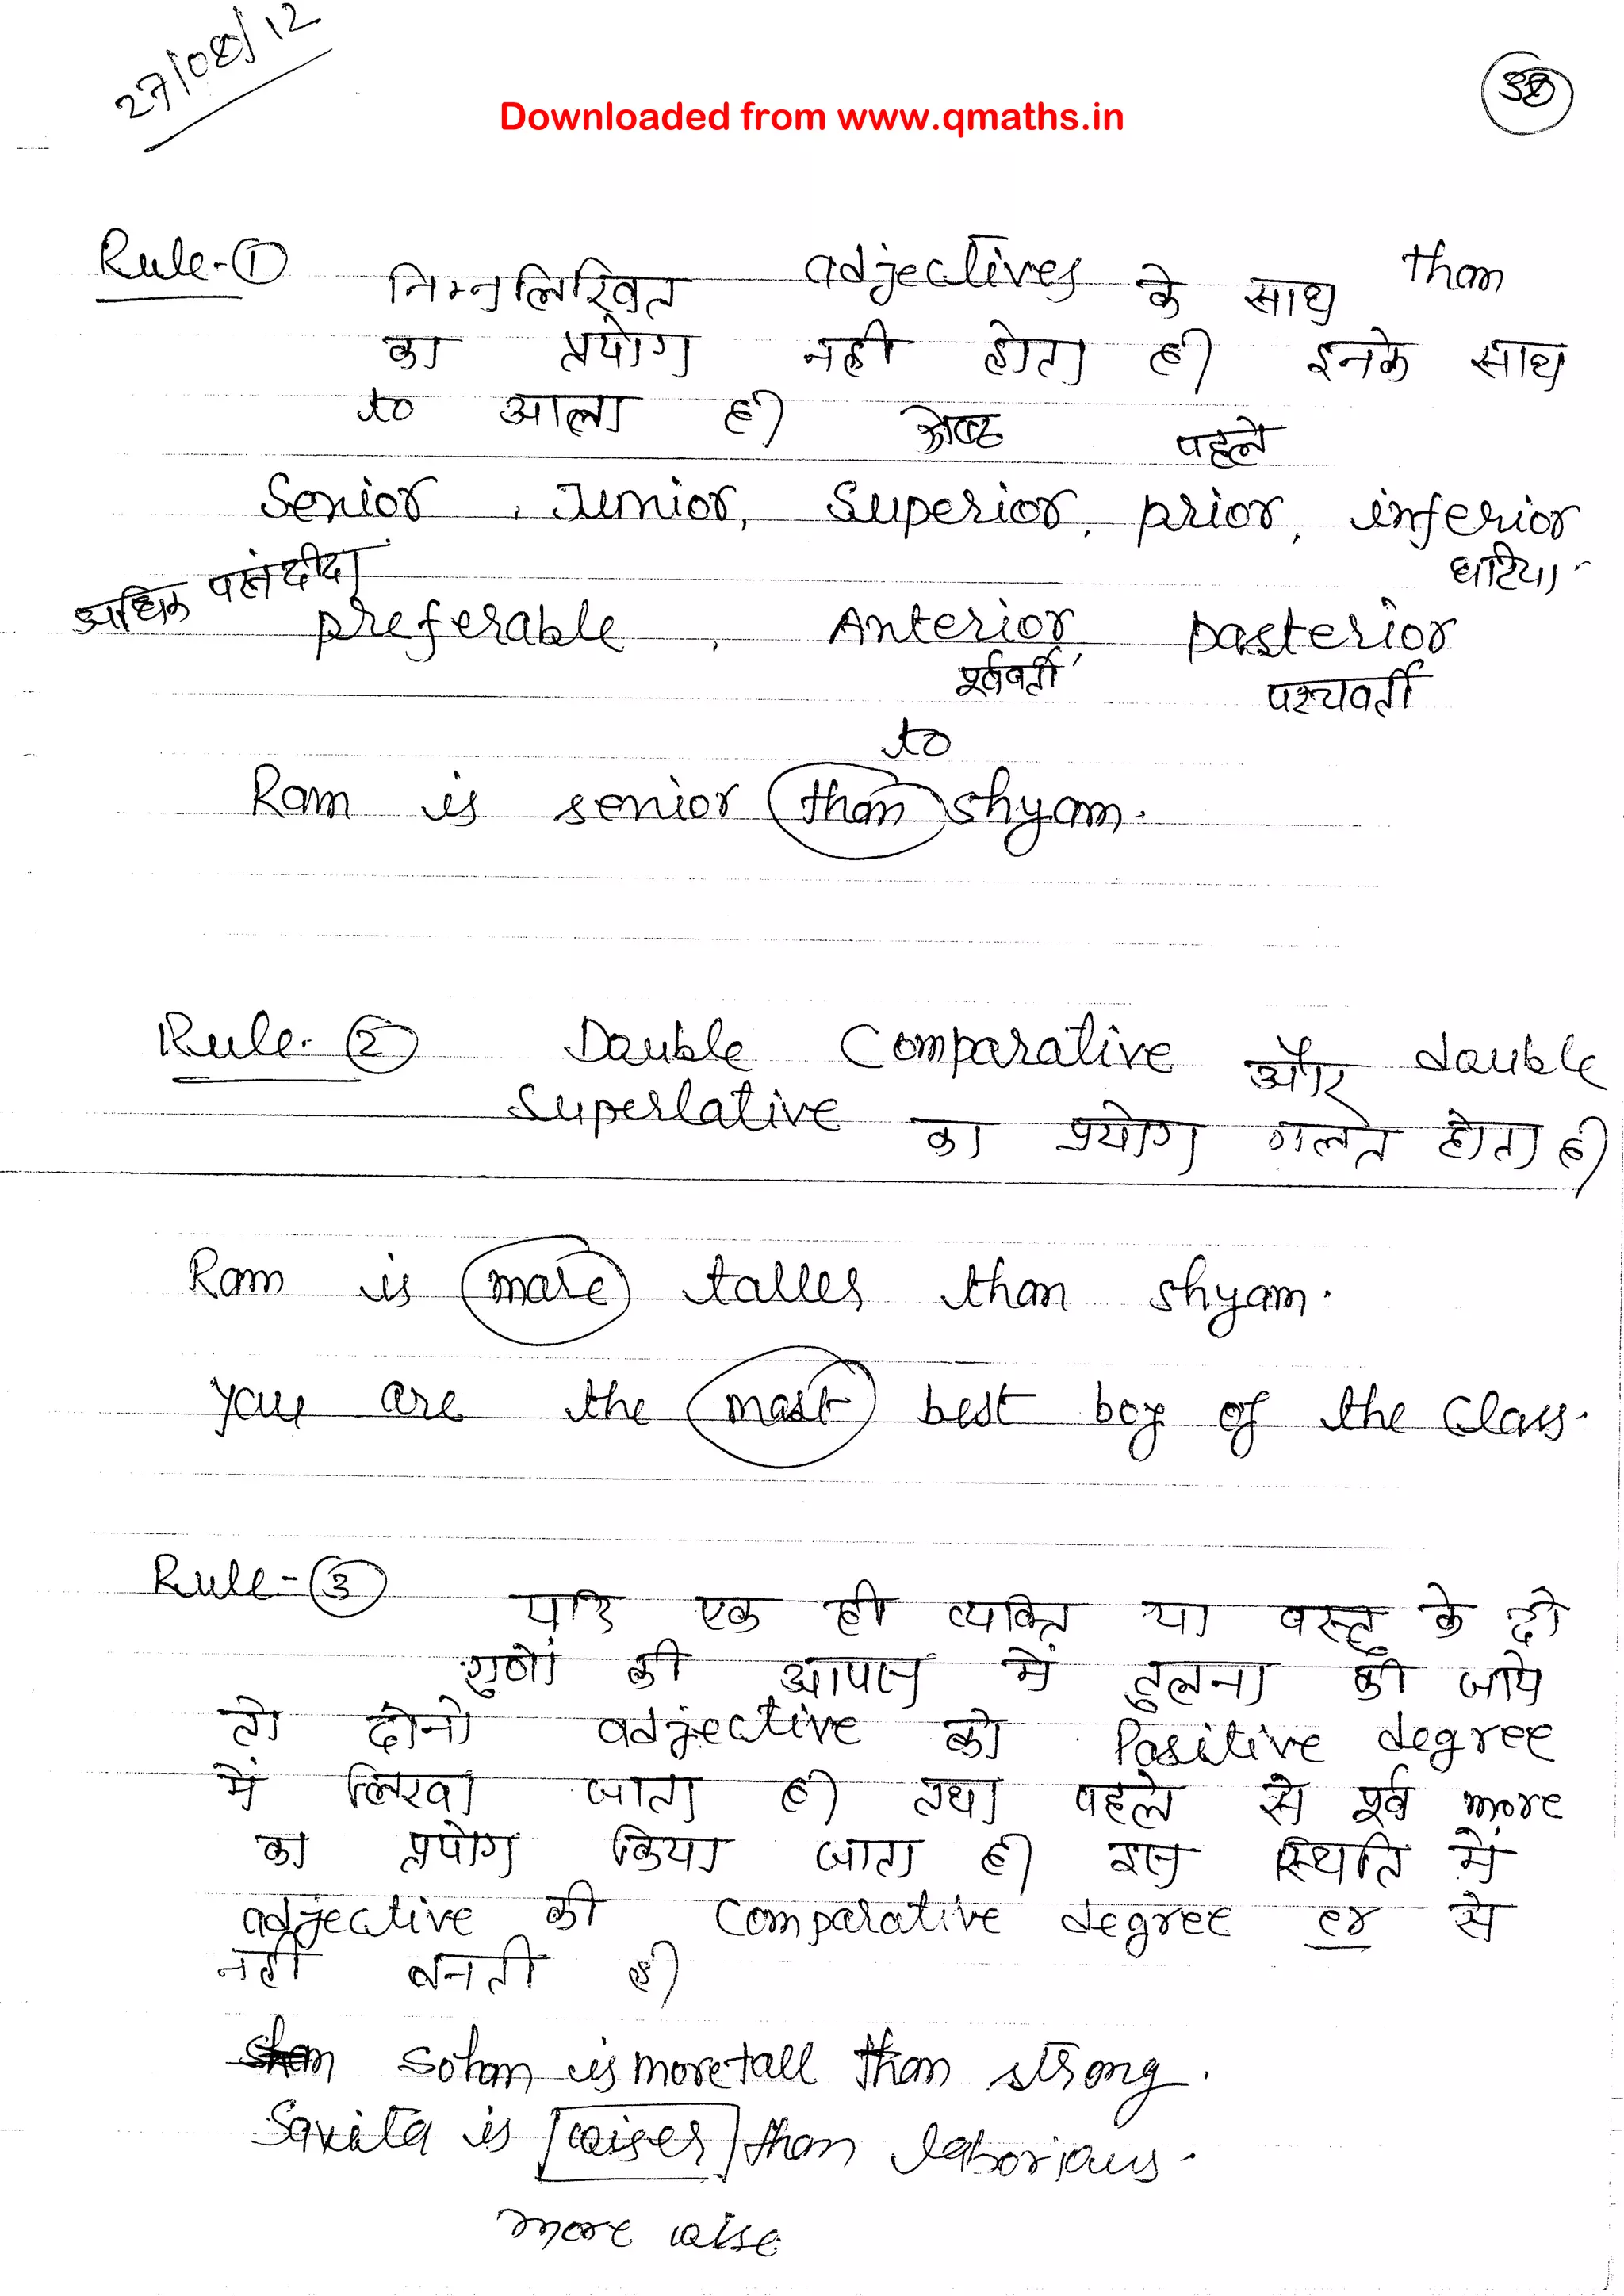 27/08/12
38
Downloaded from www.qmaths.in
Rule-① निम्नलिखित adjectives के साथ than
का प्रयोग नही होता है। इनके साथ
to आता है।
श्रेष्ठ पहले
Senior, Junior, Superior, prior, inferior
अधिक पसंदीदा घटिया
preferable, Anterior posterior
पूर्ववर्ती पश्चवर्ती
to
Ram is senior than shyam.
Rule-② Double Comparative और double
Superlative का प्रयोग गलत होता है।
Ram is more taller than shyam.
you are the most best boy of the class.
Rule-③ यदि एक ही व्यक्ति या वस्तु के दो
गुणों की आपस में तुलना की जाये
तो दोनो adjective को Positive degree
में लिखा जाता है। तथा पहले से पूर्व more
का प्रयोग किया जाता है। इस स्थिति में
adjective की Comparative degree er से
नहीं बनती है।
Sohan is more tall than strong.
Savita is wiser than laborious.
more wise